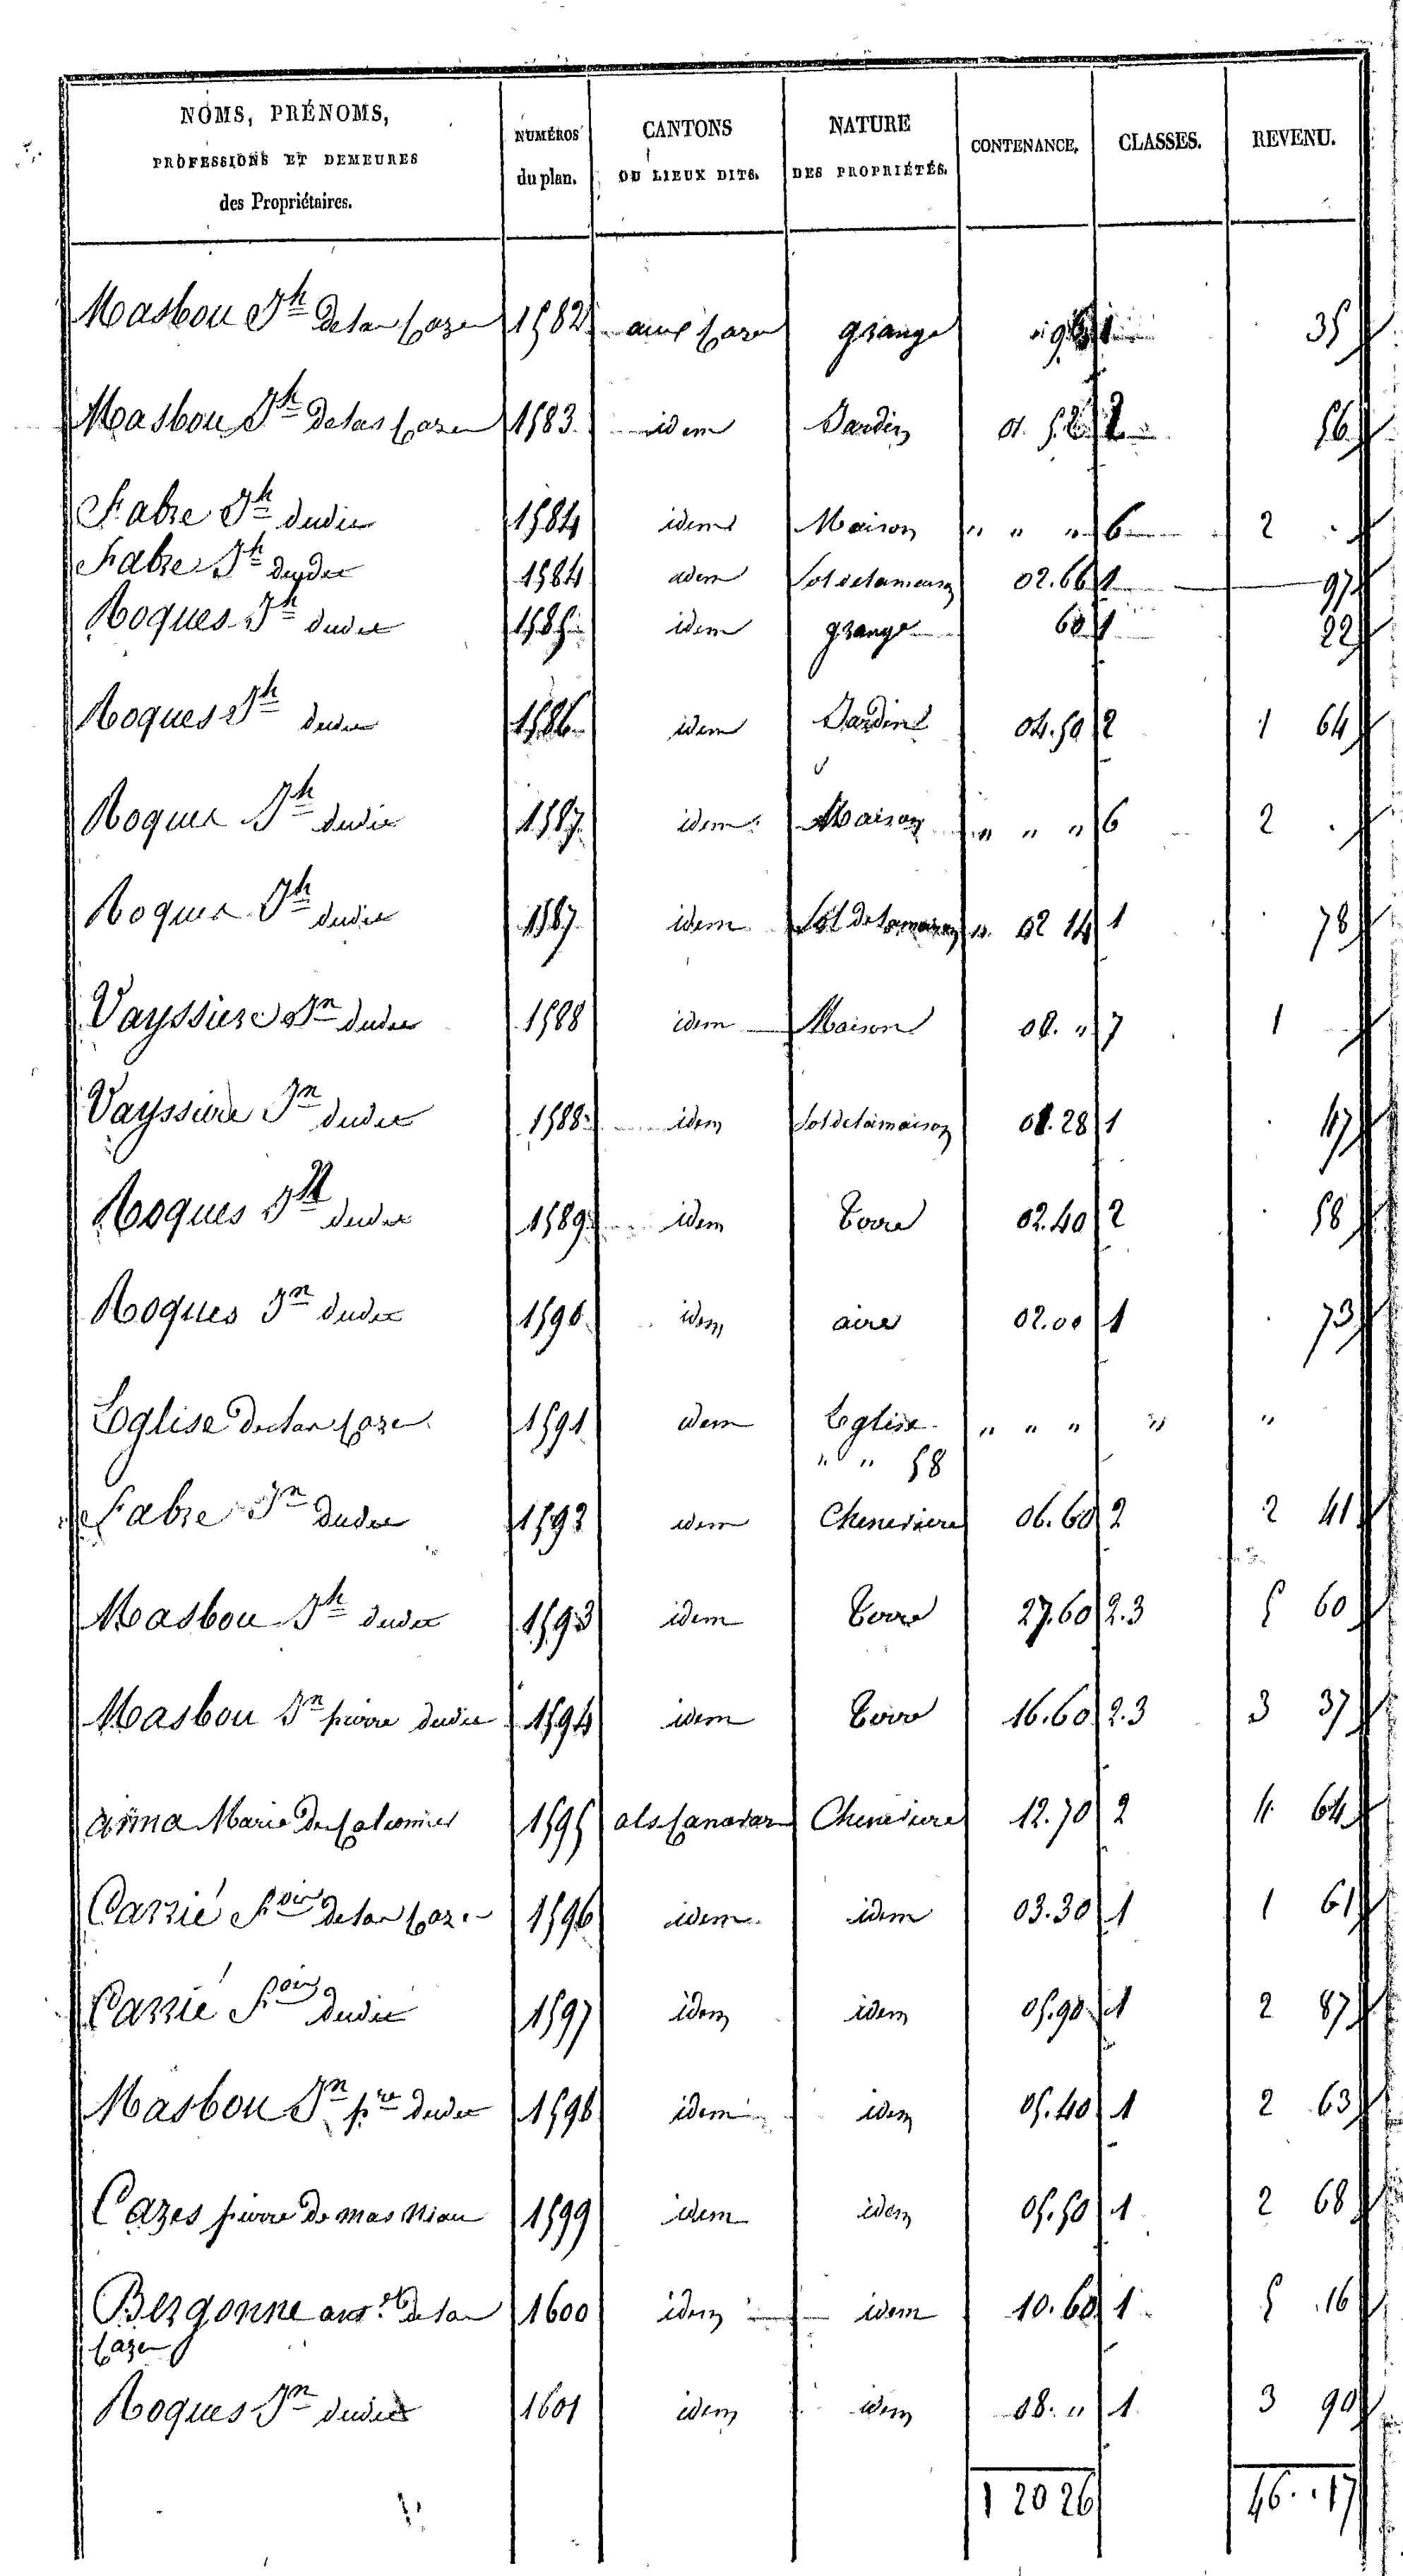 NOMS, PRÉNOMS,
PROFESSIONS ET DEMEURES
des Propriétaires.
NUMÉROS
du plan.
CANTONS
OU LIEUX DITS.
NATURE
DES PROPRIÉTÉS.
CONTENANCE.
CLASSES.
REVENU.
Masbou Jh delas Cazes 1582 aux Cazes grange 1 35
Masbou Jh delas Cazes 1583 idem Jardin 01.52 2 56
Fabre Jh dudit 1584 idem Maison " " " 6 2 .
Fabre Jh dudit 1584 idem Sol de la maison 02.66 1 97
Roques Jh dudit 1585 idem grange 60 1 22
Roques Jh dudit 1586 idem Jardin 04.50 2 1 64
Roques Jh dudit 1587 idem Maison " " " 6 2 .
Roques Jh dudit 1587 idem Sol de la maison " 02 14 1 78
Vayssiere Jn dudit 1588 idem Maison 00. " 7 1
Vayssiere Jn dudit 1588 idem Sol de la maison 01.28 1 47
Roques dudit 1589 idem terre 02.40 2 58
Roques Jn dudit 1590 idem aire 02.00 1 73
Eglise de las Cazes 1591 idem Eglise " " " " "
" " 58
Fabre Jn dudit 1592 idem Cheneviere 06.60 2 2 41
Masbou Jh dudit 1593 idem terre 27.60 2.3 5 60
Masbou Jn pierre dudit 1594 idem terre 16.60 2.3 3 37
Marie de 1595 Cheneviere 12.70 2 4 64
Carrié fois de las Cazes 1596 idem idem 03.30 1 1 61
Carrié fois dudit 1597 idem idem 05.90 1 2 87
Masbou Jn pre dudit 1598 idem idem 05.40 1 2 63
Cazes pierre de mas 1599 idem idem 05.50 1 2 68
Bergonne de las 1600 idem idem 10.60 1 5 16
Cazes
Roques Jn dudit 1601 idem idem 08. " 1 3 90
1 20 26 46..17